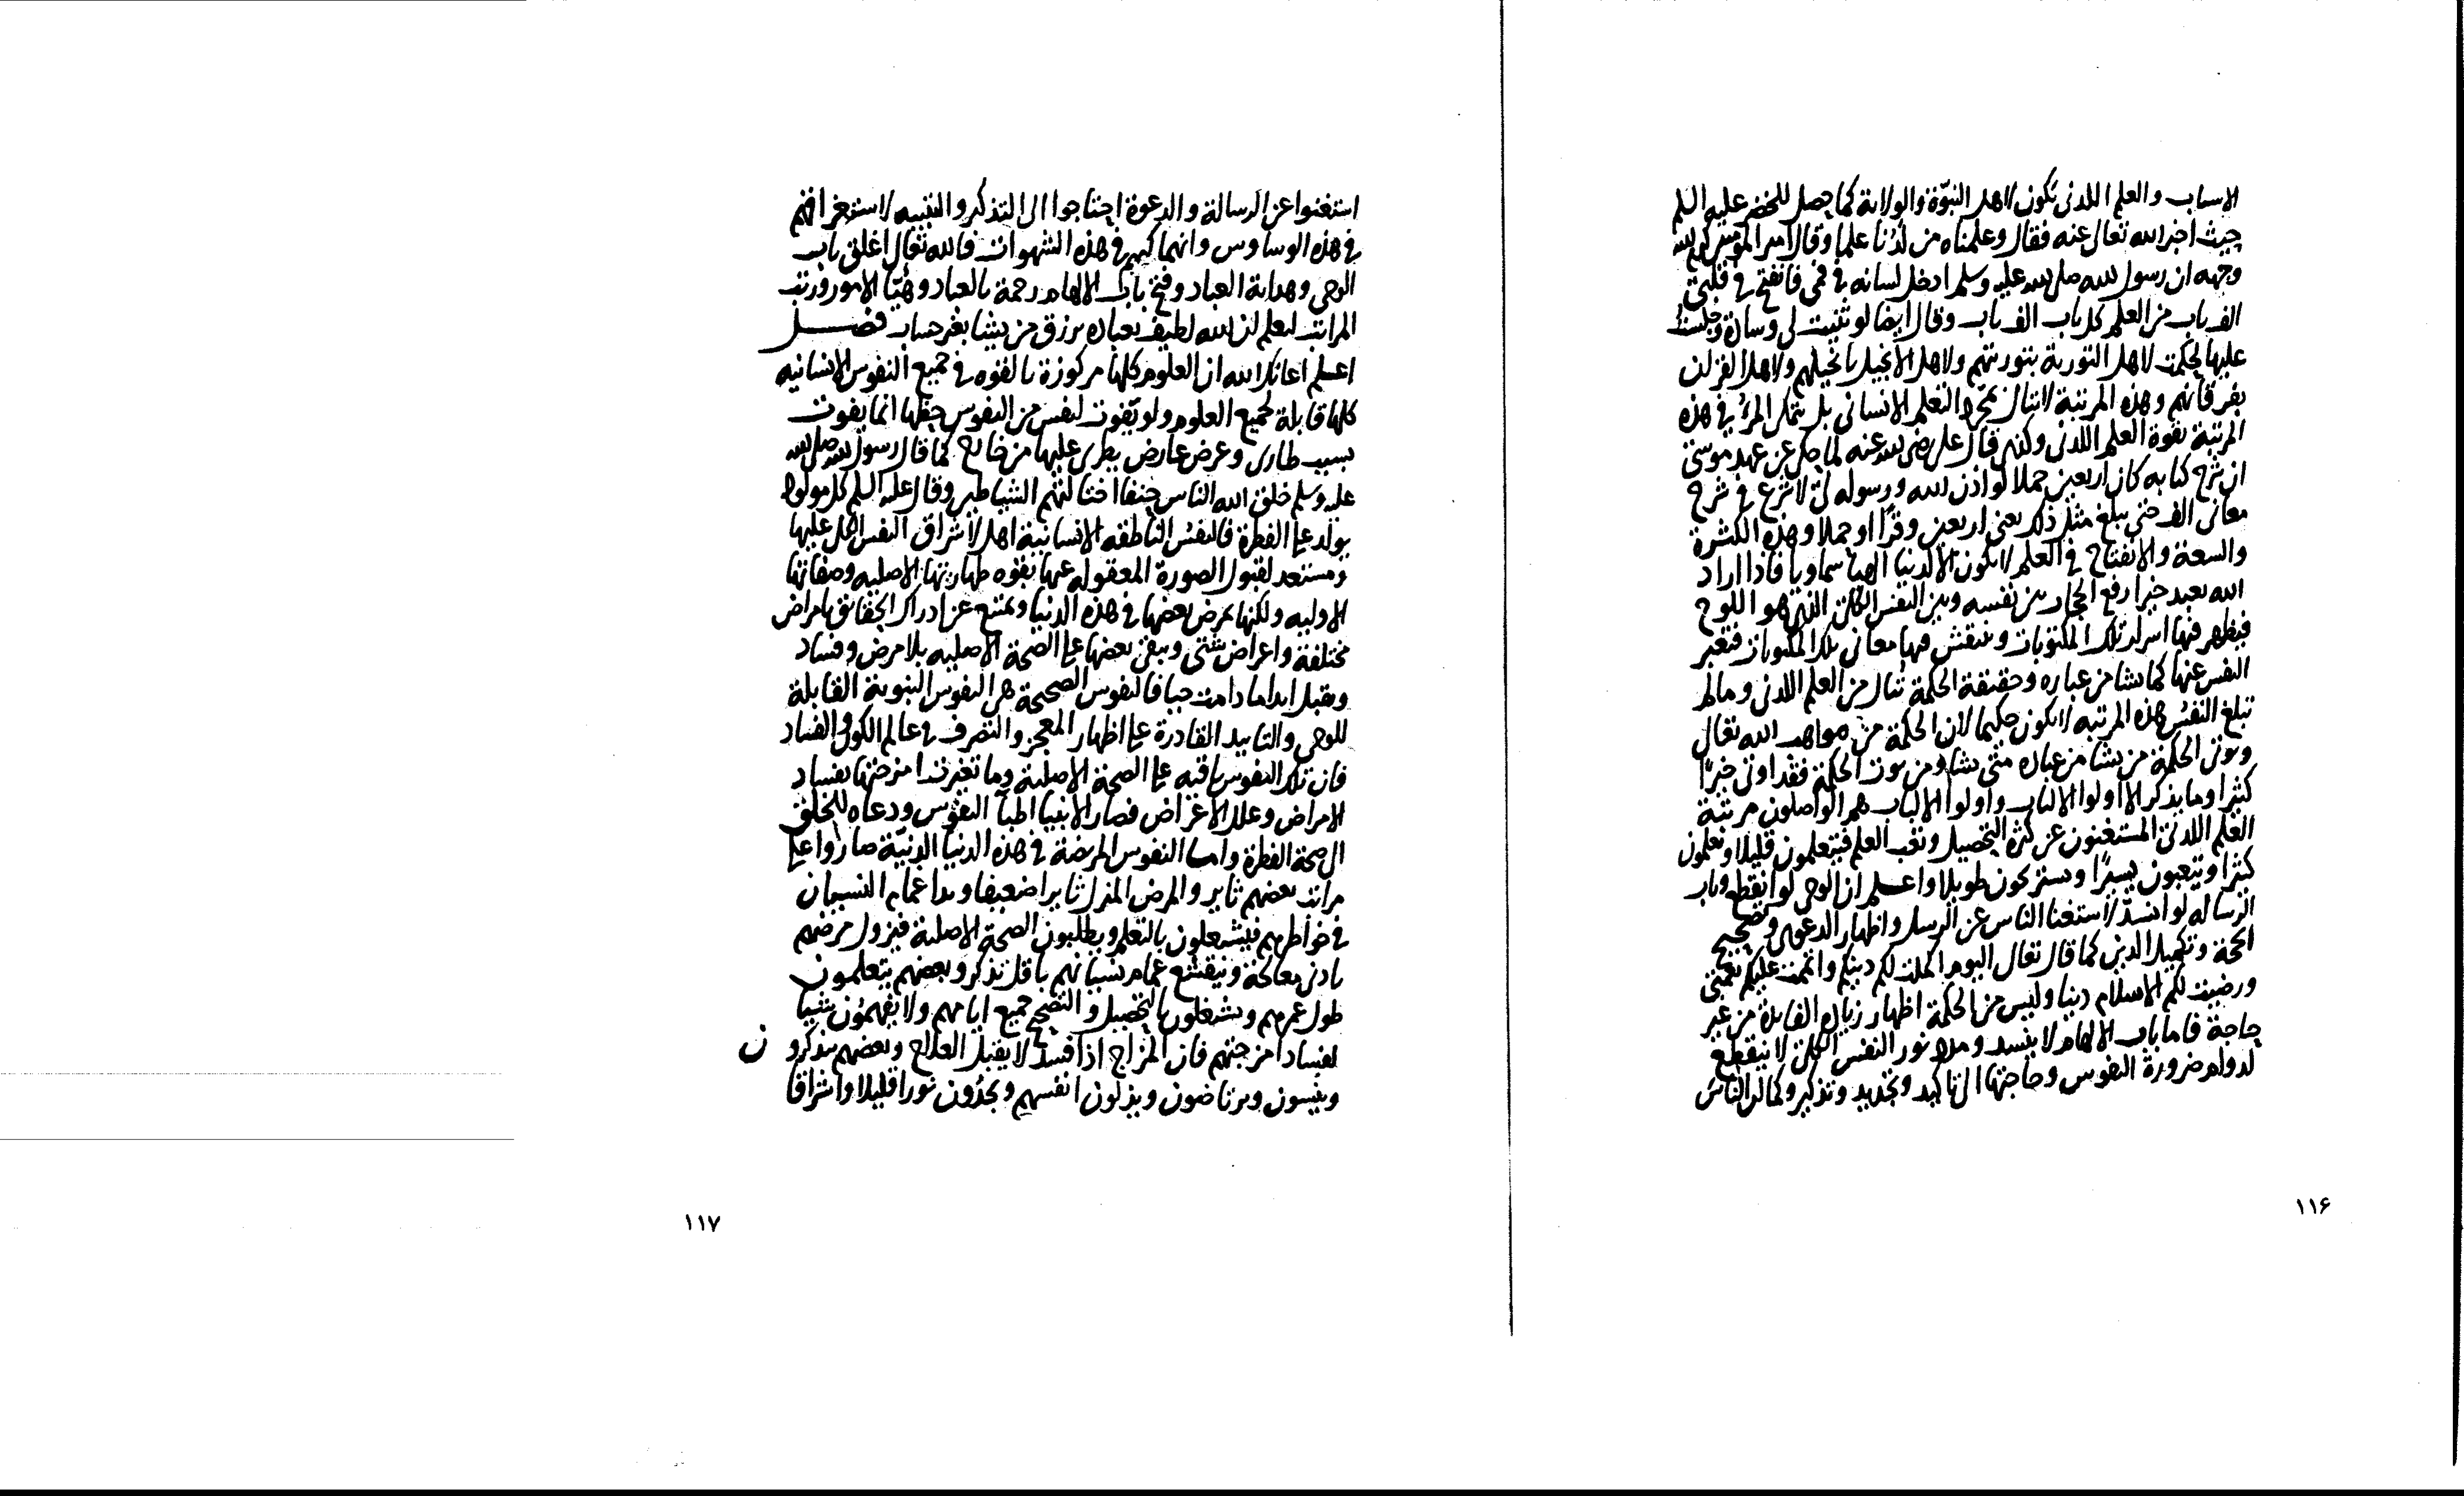 الاسباب والعلم اللدنى تكون لاهل النبوّة والولاية كما حصل للخضر عليه السلم
حيث اخبر الله تعالى عنه فقال وعلمناه من لدُنا علما وقال امير المومنين كرم الله
وجهه ان رسول الله صلى الله عليه وسلم ادخل لسانه فى فمى فانفتح فى قلبى
الف باب من العلم كل باب الف باب وقال ايضا لو ثنيت لى وسادة وجلست
عليها لحكمت لاهل التورية بتوريتهم ولاهل الانجيل بانجيلهم ولاهل القران
بفرقانهم وهذه المرتبة لا تنال بمجرد التعلم الانسانى بل يتمكن المرء فى هذه
المرتبة بقوة العلم اللدنى وكذى قال على رضى الله عنه لما حكى عن عهد موسى
ان شرح كتابه كان اربعين حملا لو اذن الله ورسوله لى لاشرع فى شرح
معانى الف حتى يبلغ مثل ذلك يعنى اربعين وقرًا او حملا وهذه الكثرة
والسعة والانفتاح فى العلم لا تكون الا لدنيا الهيا سماويا فاذا اراد
الله بعبد خيرا رفع الحجاب بين نفسه وبين النفس الكلى الذى هو اللوح
فيظهر فيها اسرار تلك المكنونات وينتقش فيها معانى تلك المكنونات فتعبر
النفس عنها كما يشا من عباره وحقيقة الحكمة تنال من العلم اللدنى وما لم
تبلغ النفس هذه المرتبه لا يكون حكيما لان الحكمة من مواهب الله تعالى
ويوتى الحكمة من يشا من عباده متى يشا ومن يوت الحكمة فقد اوتى خيرًا
كثيرا وما يذكر الا اولوا الالباب واولوا الالباب هم الواصلون مرتبة
العلم اللدنى المستغنون عن كثرة التحصيل وتعب العلم فيتعلمون قليلا ويعلمون
كثيرا ويتعبون يسيرًا ويستريحون طويلا واعلم ان الوحى لو انقطع وباب
الرساله لو انسدّ لاستغنا الناس عن الرسل واظهار الدعوى وتصحيح
الحجة وتكميل الدين كما قال تعالى اليوم اكملت لكم دينكم واتممت عليكم نعمتى
ورضيت لكم الاسلام دينا وليس من الحكمة اظهار زيادة الفايدة من غير
حاجة فاما باب الالهام لا ينسد ومدد نور النفس الكلى لا ينقطع
لدوام ضرورة النفوس وحاجتها الى تاكيد وتجديد وتذكير وكما ان الناس
۱۱۶
استغنوا عن الرسالة والدعوة احتاجوا الى التذكير والتنبيه لاستغراقهم
فى هذه الوساوس وانهماكهم فى هذه الشهوات فالله تعالى اغلق باب
الوحى وهداية العباد وفتح باب الالهام رحمة بالعباد وهيّا الامور ورتب
المراتب ليعلم ان الله لطيف بعباده يرزق من يشا بغير حساب فصل
اعلم اعانك الله ان العلوم كلها مركوزة بالقوه فى جميع النفوس الانسانيه
كلها قابلة لجميع العلوم ولو تفوت لنفس من النفوس حظها انما يفوت
بسبب طارى وعرض عارض يطرى عليها من خارج كما قال رسول الله صلى الله
عليه وسلم خلق الله الناس حنفا اختالتهم الشياطين وقال عليه السلم كل مولود
يولد على الفطرة فالنفس الناطقه الانسانية اهل لاشراق النفس الكلى عليها
ومستعد لقبول الصورة المعقوله عنها بقوه طهارتها الاصليه وصفاتها
الاوليه ولكنها يمرض بعضها فى هذه الدنيا ويمتنع عن ادراك الحقائق بامراض
مختلفة واعراض شتى ويبقى بعضها على الصحة الاصليه بلا مرض وفساد
ويقبل ابدا ما دامت حيا فالنفوس الصحيحة هى النفوس النبوية القابلة
للوحى والتاييد القادرة على اظهار المعجز والتصرف فى عالم الكون والفساد
فان تلك النفوس باقيه على الصحة الاصلية وما تغيرت امزجتها بفساد
الامراض وعلل الاغراض فصار الانبيا اطبآ النفوس ودعاه للخلق
الى صحة الفطرة واما النفوس المريضة فى هذه الدنيا الدنيّة صاروا على
مراتب بعضهم تاثير والمرض المنزل تاثيرا ضعيفا وبدا غمام النسيان
فى خواطرهم فيشتغلون بالتعلم ويطلبون الصحة الاصلية فيزول مرضهم
بادنى معالجة وينقشع غمام نسيانهم باقل تذكر وبعضهم يتعلمون
طول عمرهم ويشتغلون بالتحصيل والتصحيح جميع ايامهم ولا يفهمون شيا
لفساد امزجتهم فان المزاج اذا فسد لا يقبل العلاج وبعضهم يتذكرو ن
وينسون ويرتاضون ويذلون انفسهم ويجدون نورا قليلا واشراقا
۱۱۷